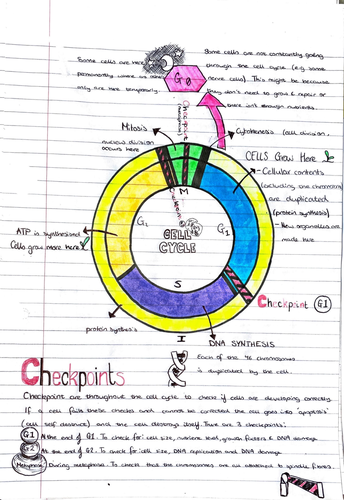 Some cells are here
permanently where as others
only are here temporarily.
G0
Some cells are not constantly going
through the cell cycle (e.g some
nerve cells). This might be because
they don't need to grow & repair or
there isn't enough nutrients.
Checkpoint
Mitosis
nuclear division
occurs here
Cytokinesis (cell division)
CELLS Grow Here
- Cellular contents
(excluding the chromosomes)
are duplicated
(protein synthesis)
- New organelles are
made here
M
G2
G1
CELL
CYCLE
S
ATP is synthesised
Cells grow more here
Checkpoint G1
protein sythesis
I
DNA SYNTHESIS
Each of the 46 chromosomes
is duplicated by the cell.
Checkpoints
Checkpoint are throughout the cell cycle to check if cells are developing correctly
If a cell fails these checks and cannot be corrected the cell goes into 'apoptosis'
(cell self distruct) and the cell destroys itself. There are 3 checkpoints:
G1 At the end of G1. To check for cell size, nutrient level, growth factors & DNA damage
G2 At the end of G2. To check for cell size, DNA replication and DNA damage
Metaphase During metaphase. To check that the chromosomes are all attached to spindle fibres.